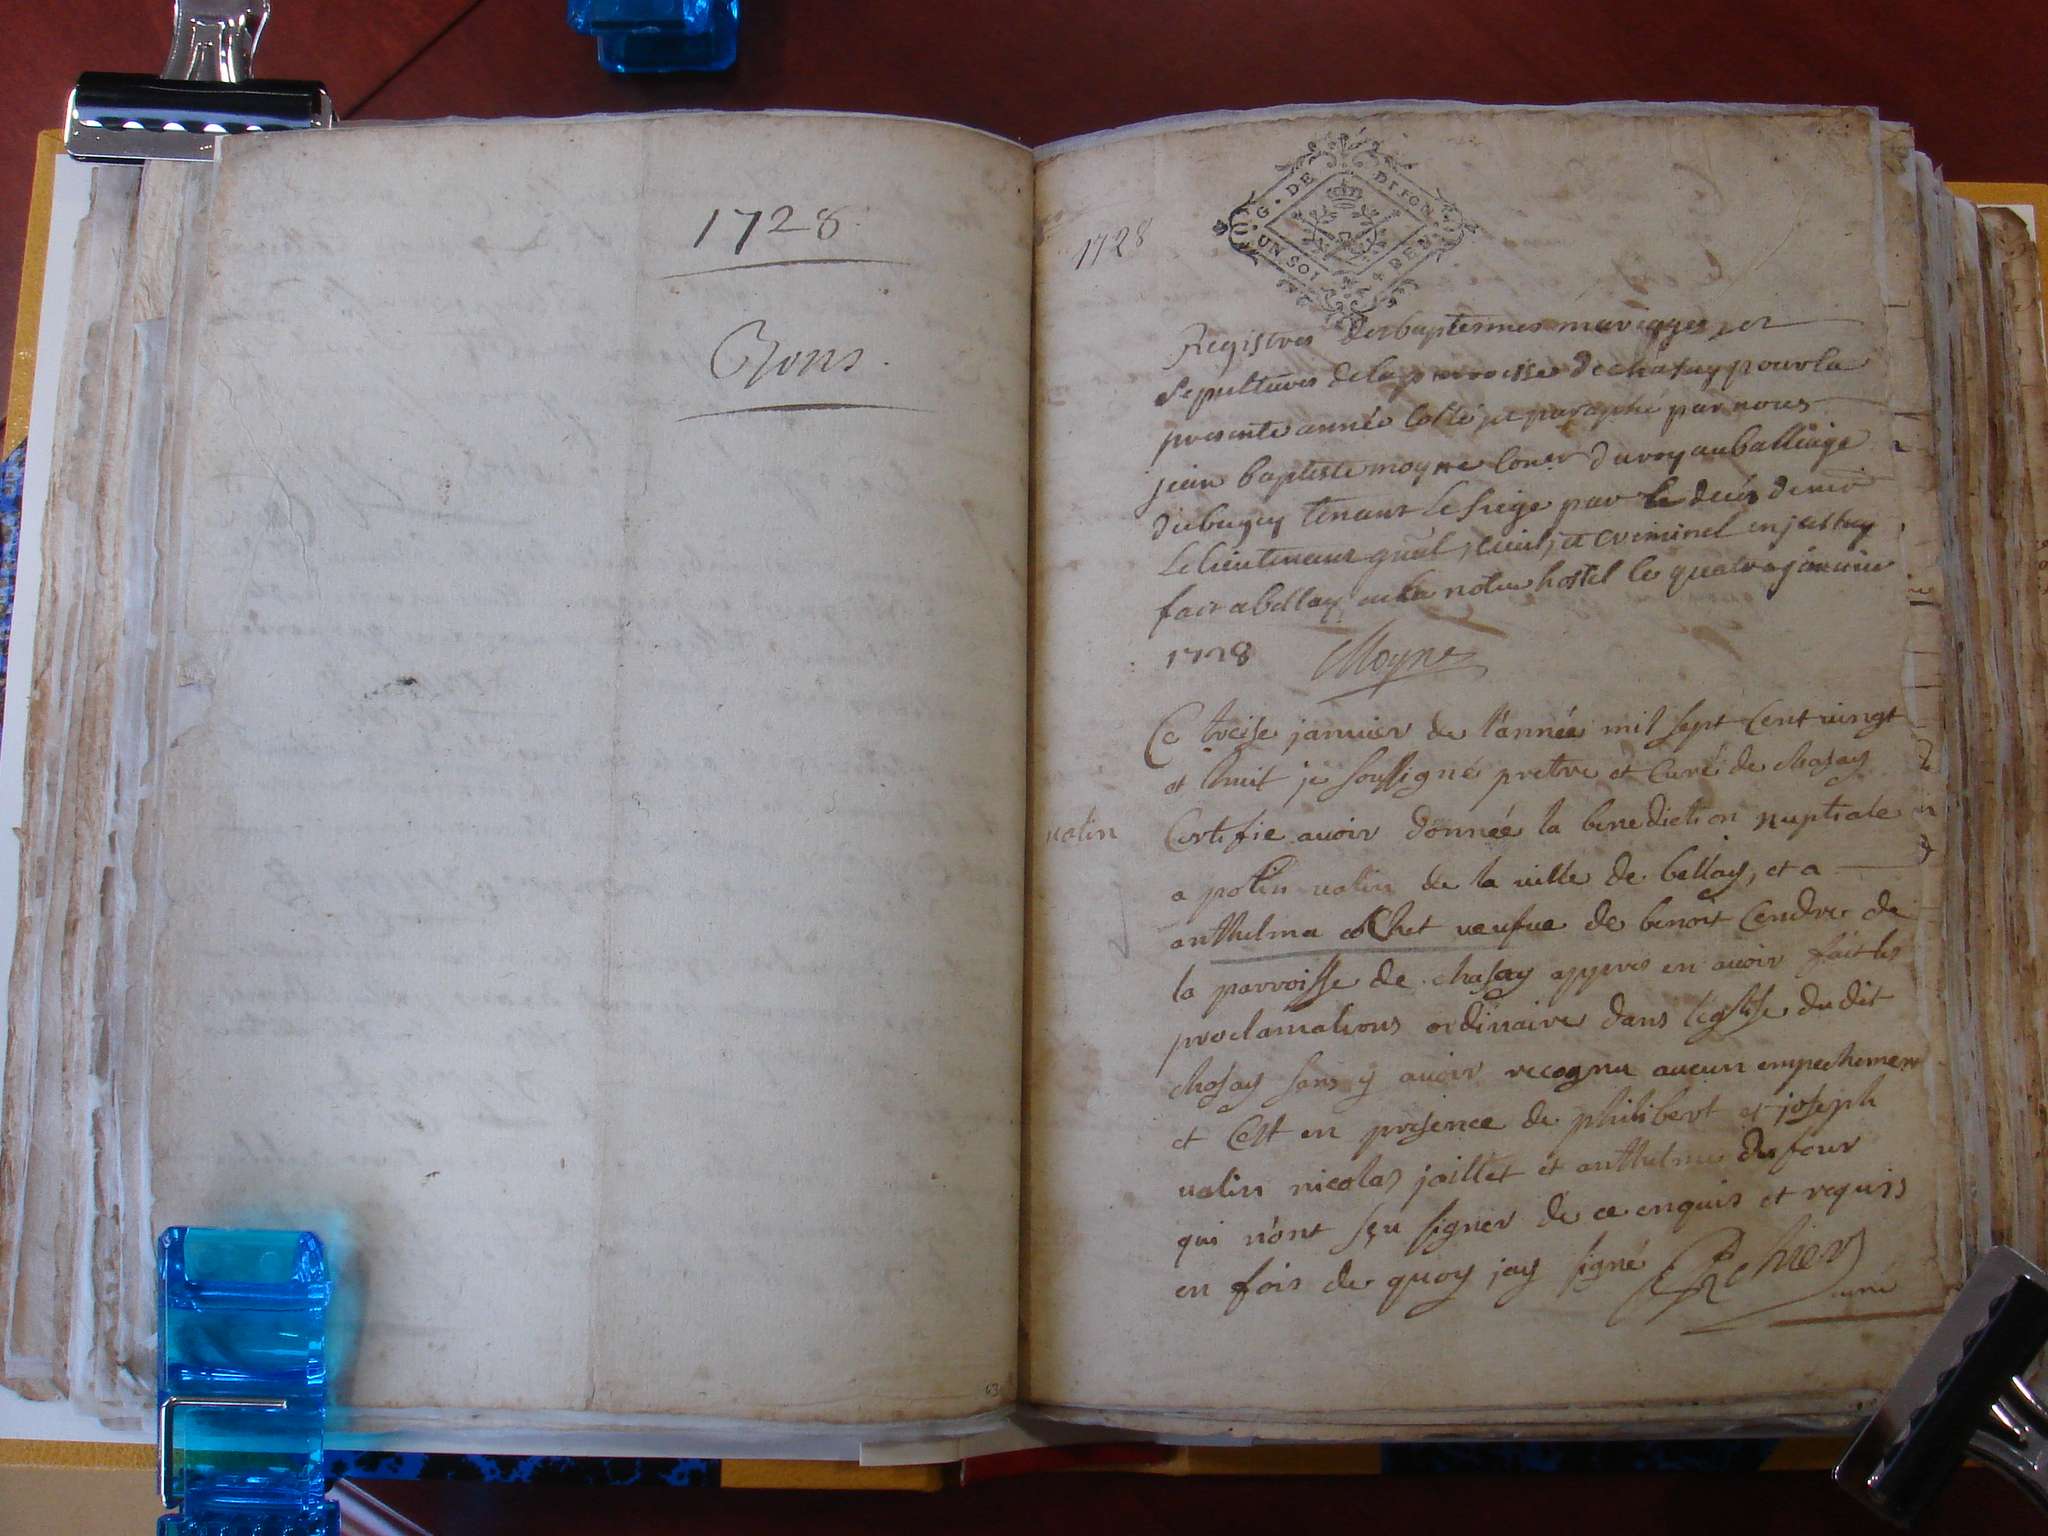 1728
Bons.
1728
G. DE DIJON
UN SOL
Registres des baptesmes mariages, et
sepultures de la parroisse de chasay pour la
presente année Cotté, et paraphé par nous
jean baptiste moyne Coner du roy au balliage
du bugey tenant Le siege par le decés de mr
Le lieutenant gnal, ciuil, et criminel en
fait a bellay notre hostel le quatre januier
1728 Moyne
Ce treise januier de l'année mil sept Cent uingt
et huit je soussigné pretre et Curé de chasay
ualin
Certifie auoir donnée la benediction nuptiale
a potin ualin de la uille de bellay, et a
anthelma veufue de benoit Cendre de
la parroisse de chasay appres en auoir fait les
proclamations ordinaire dans l'eglise du dit
chasay sans y auoir recognu aucun empechement
et Cest en presence de philibert et joseph
ualin nicolas jaillet et anthelme dufour
qui n'ont sçu signer de ce enquis et requis
en fois de quoy jay signé
curé
63